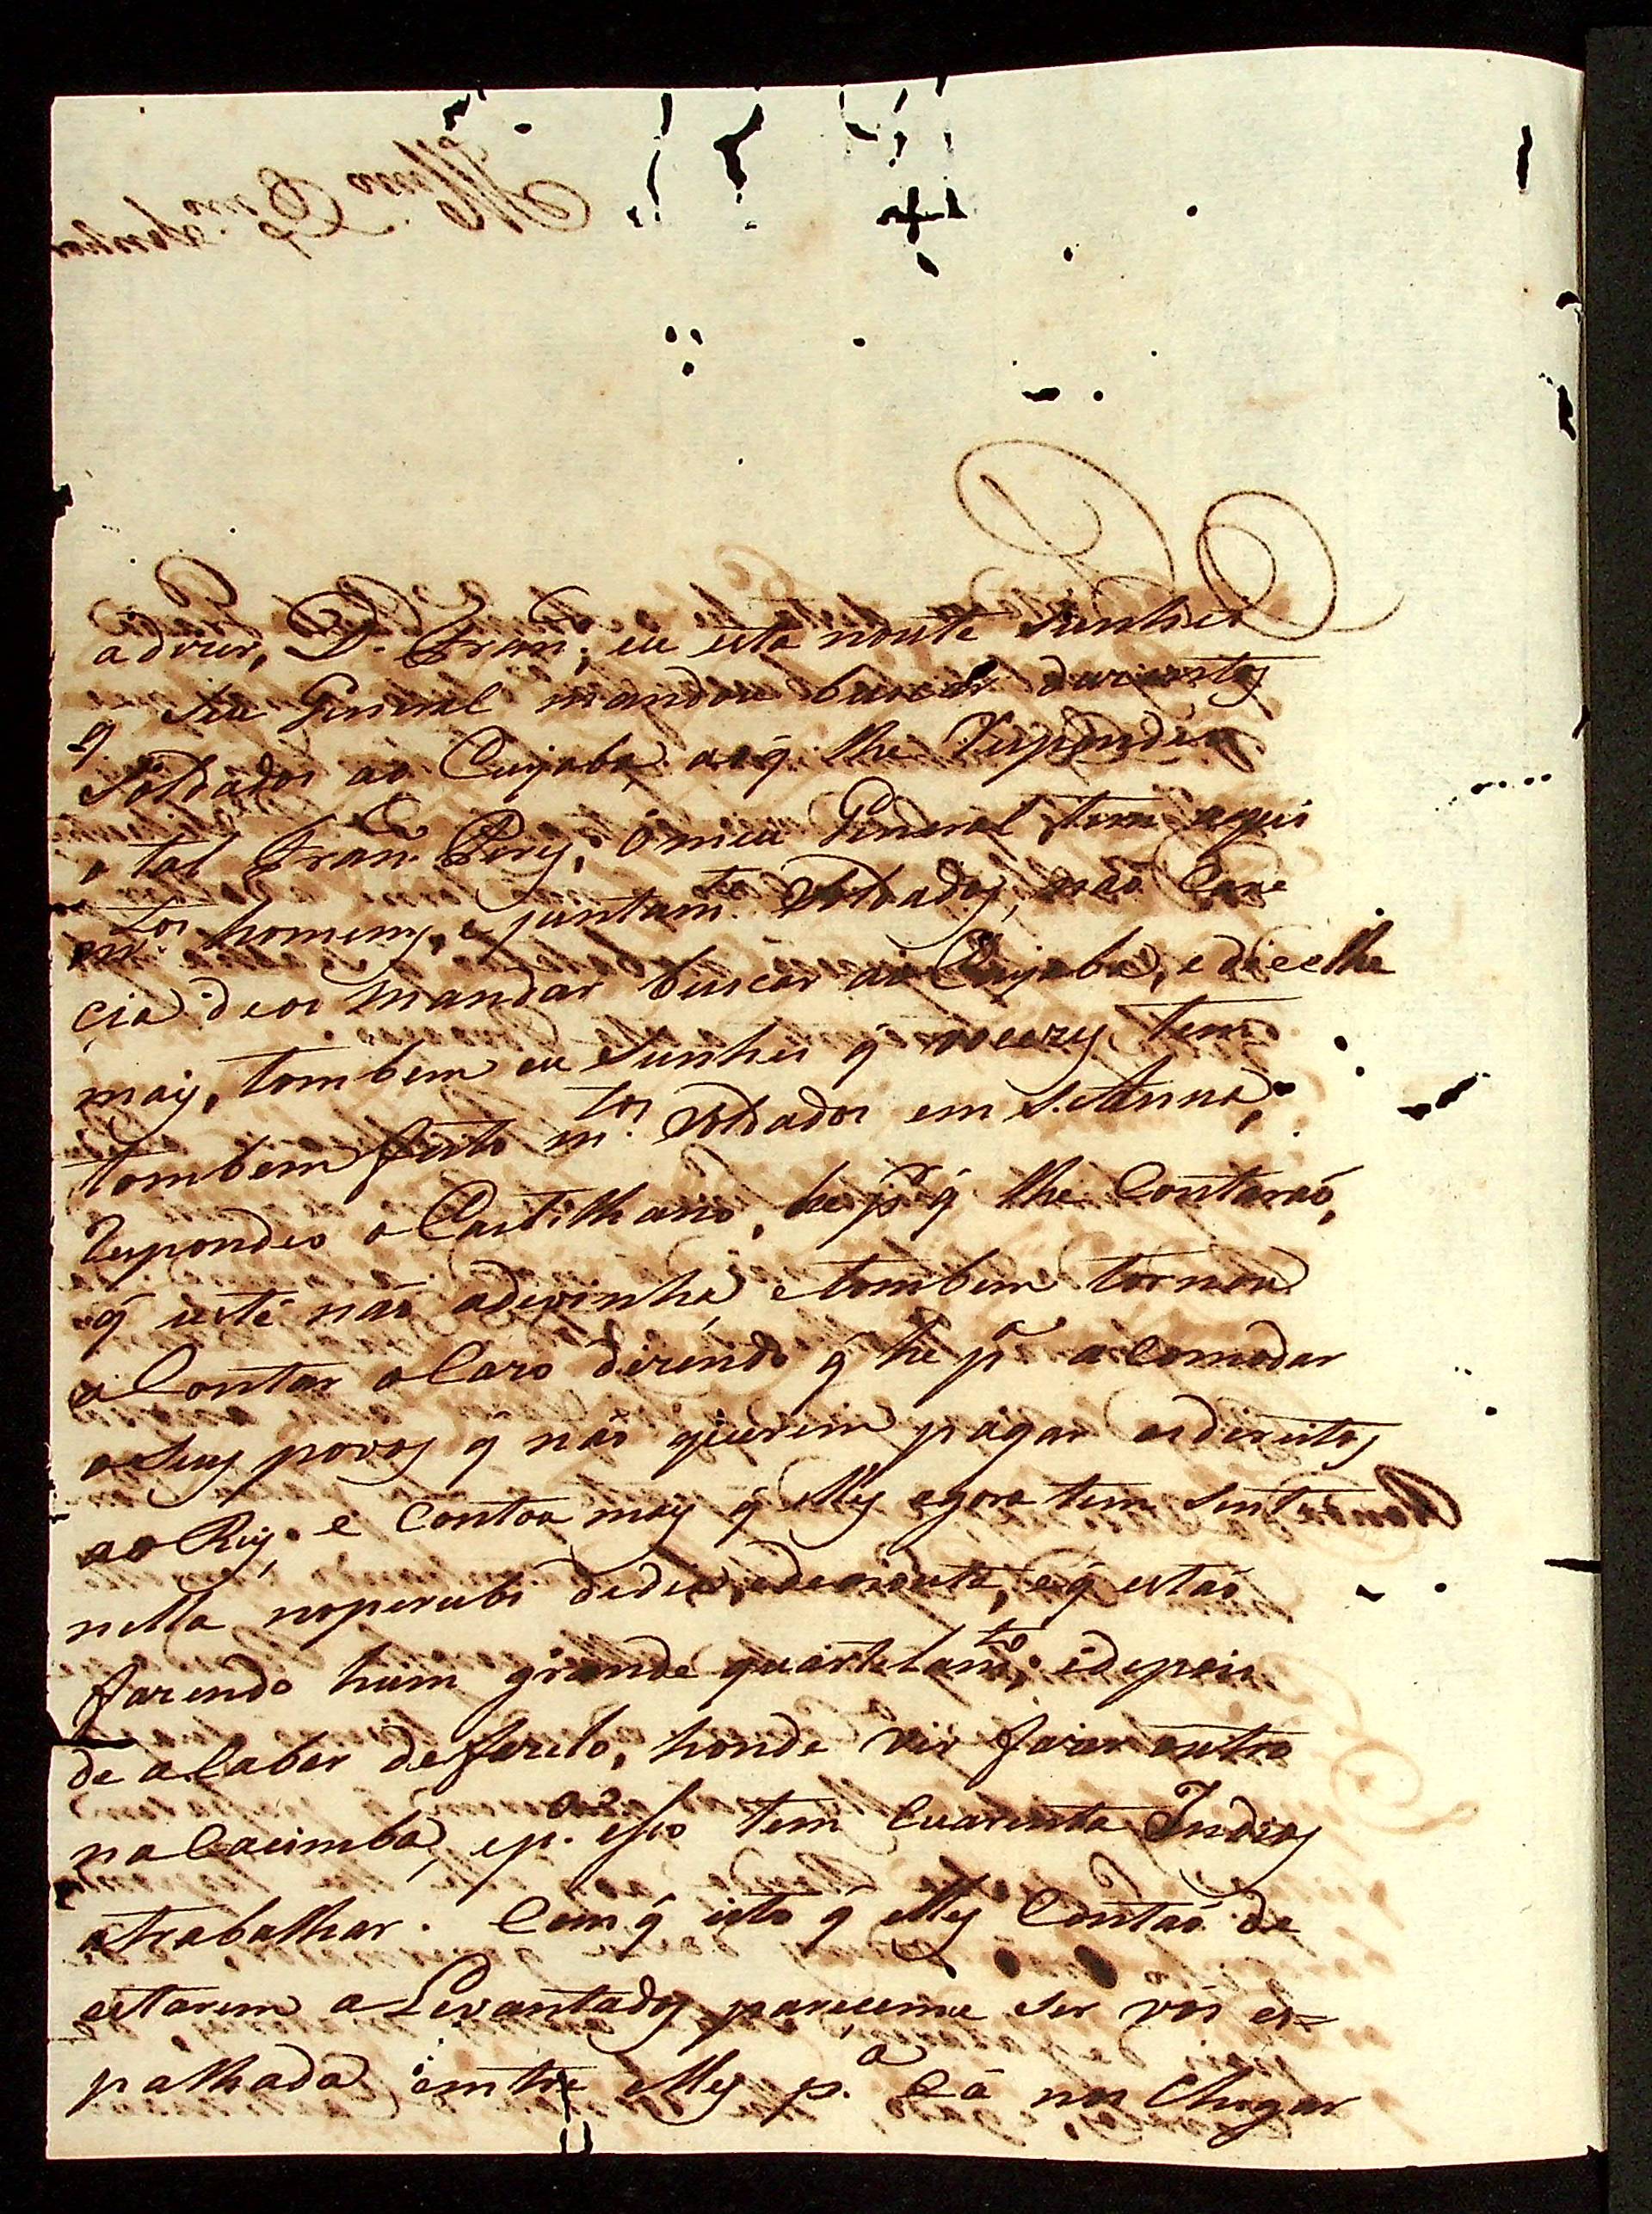 a dizer, D. Fran.co, eu esta noute sunhei
q̃ seu General mandou buscar duzentos
soldados ao Cuyaba, ao q̃ lhe Respondeu
o tal Fran.co Periz, o meu General tem aqui
m.tos homens, e juntam.te soldados, não Care
cia deos mandar buscar ao Cuyaba, e dicelhe
mais, tombem eu sunhei q̃ vocezes tem
tombem feito m.tos soldados em S. Anna,
Respondeo o Castilhano, he p.r q̃ lhe Contaraõ,
q̃ usté não adevinha, e tombem tornou
a Contar o Cazo dizendo q̃ he p.a a Comodar
o seus povos q̃ não querem pagar os direitos
ao Rey, e Contou mais q̃ elles agora tem sent
nella no perubi de dia, e de noute, e q̃ estão
fazendo hum grande quartelam.to, e depois
de aCabar de fazelo, honde vir fazer outro
na Cacimba, e p.a isso tem Cuarenta Indios
a trabalhar. Com q̃ isto q̃ elles Contaõ de
estarem a Levantados pareceme ser vós es=
palhada entre elles p.a Cá nos Chegar